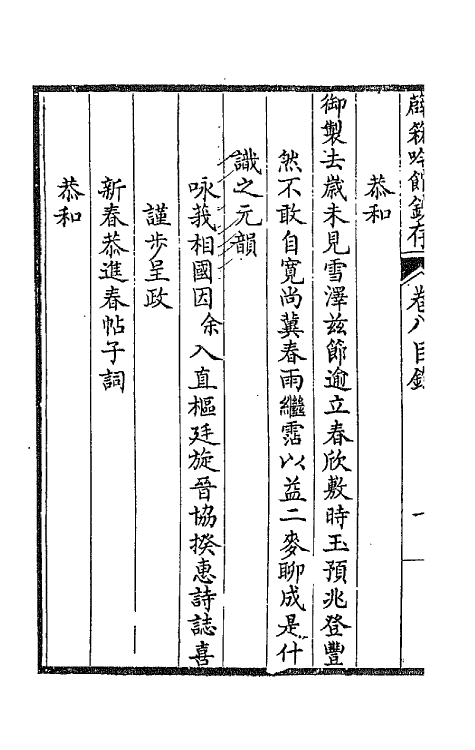 薜箖吟館鈔存 卷八目錄 一
恭和
御製去歲未見雪澤茲節逾立春欣敷時玉預兆登豐
然不敢自寬尚冀春雨繼霑以益二麥聊成是什
識之元韻
咏莪相國因余入直樞廷旋晉協揆惠詩誌喜
謹步呈政
新春恭進春帖子詞
恭和